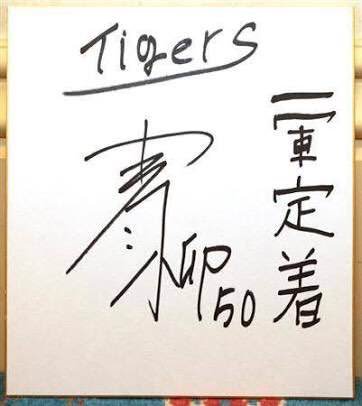 Tigers
一軍定着
青柳50